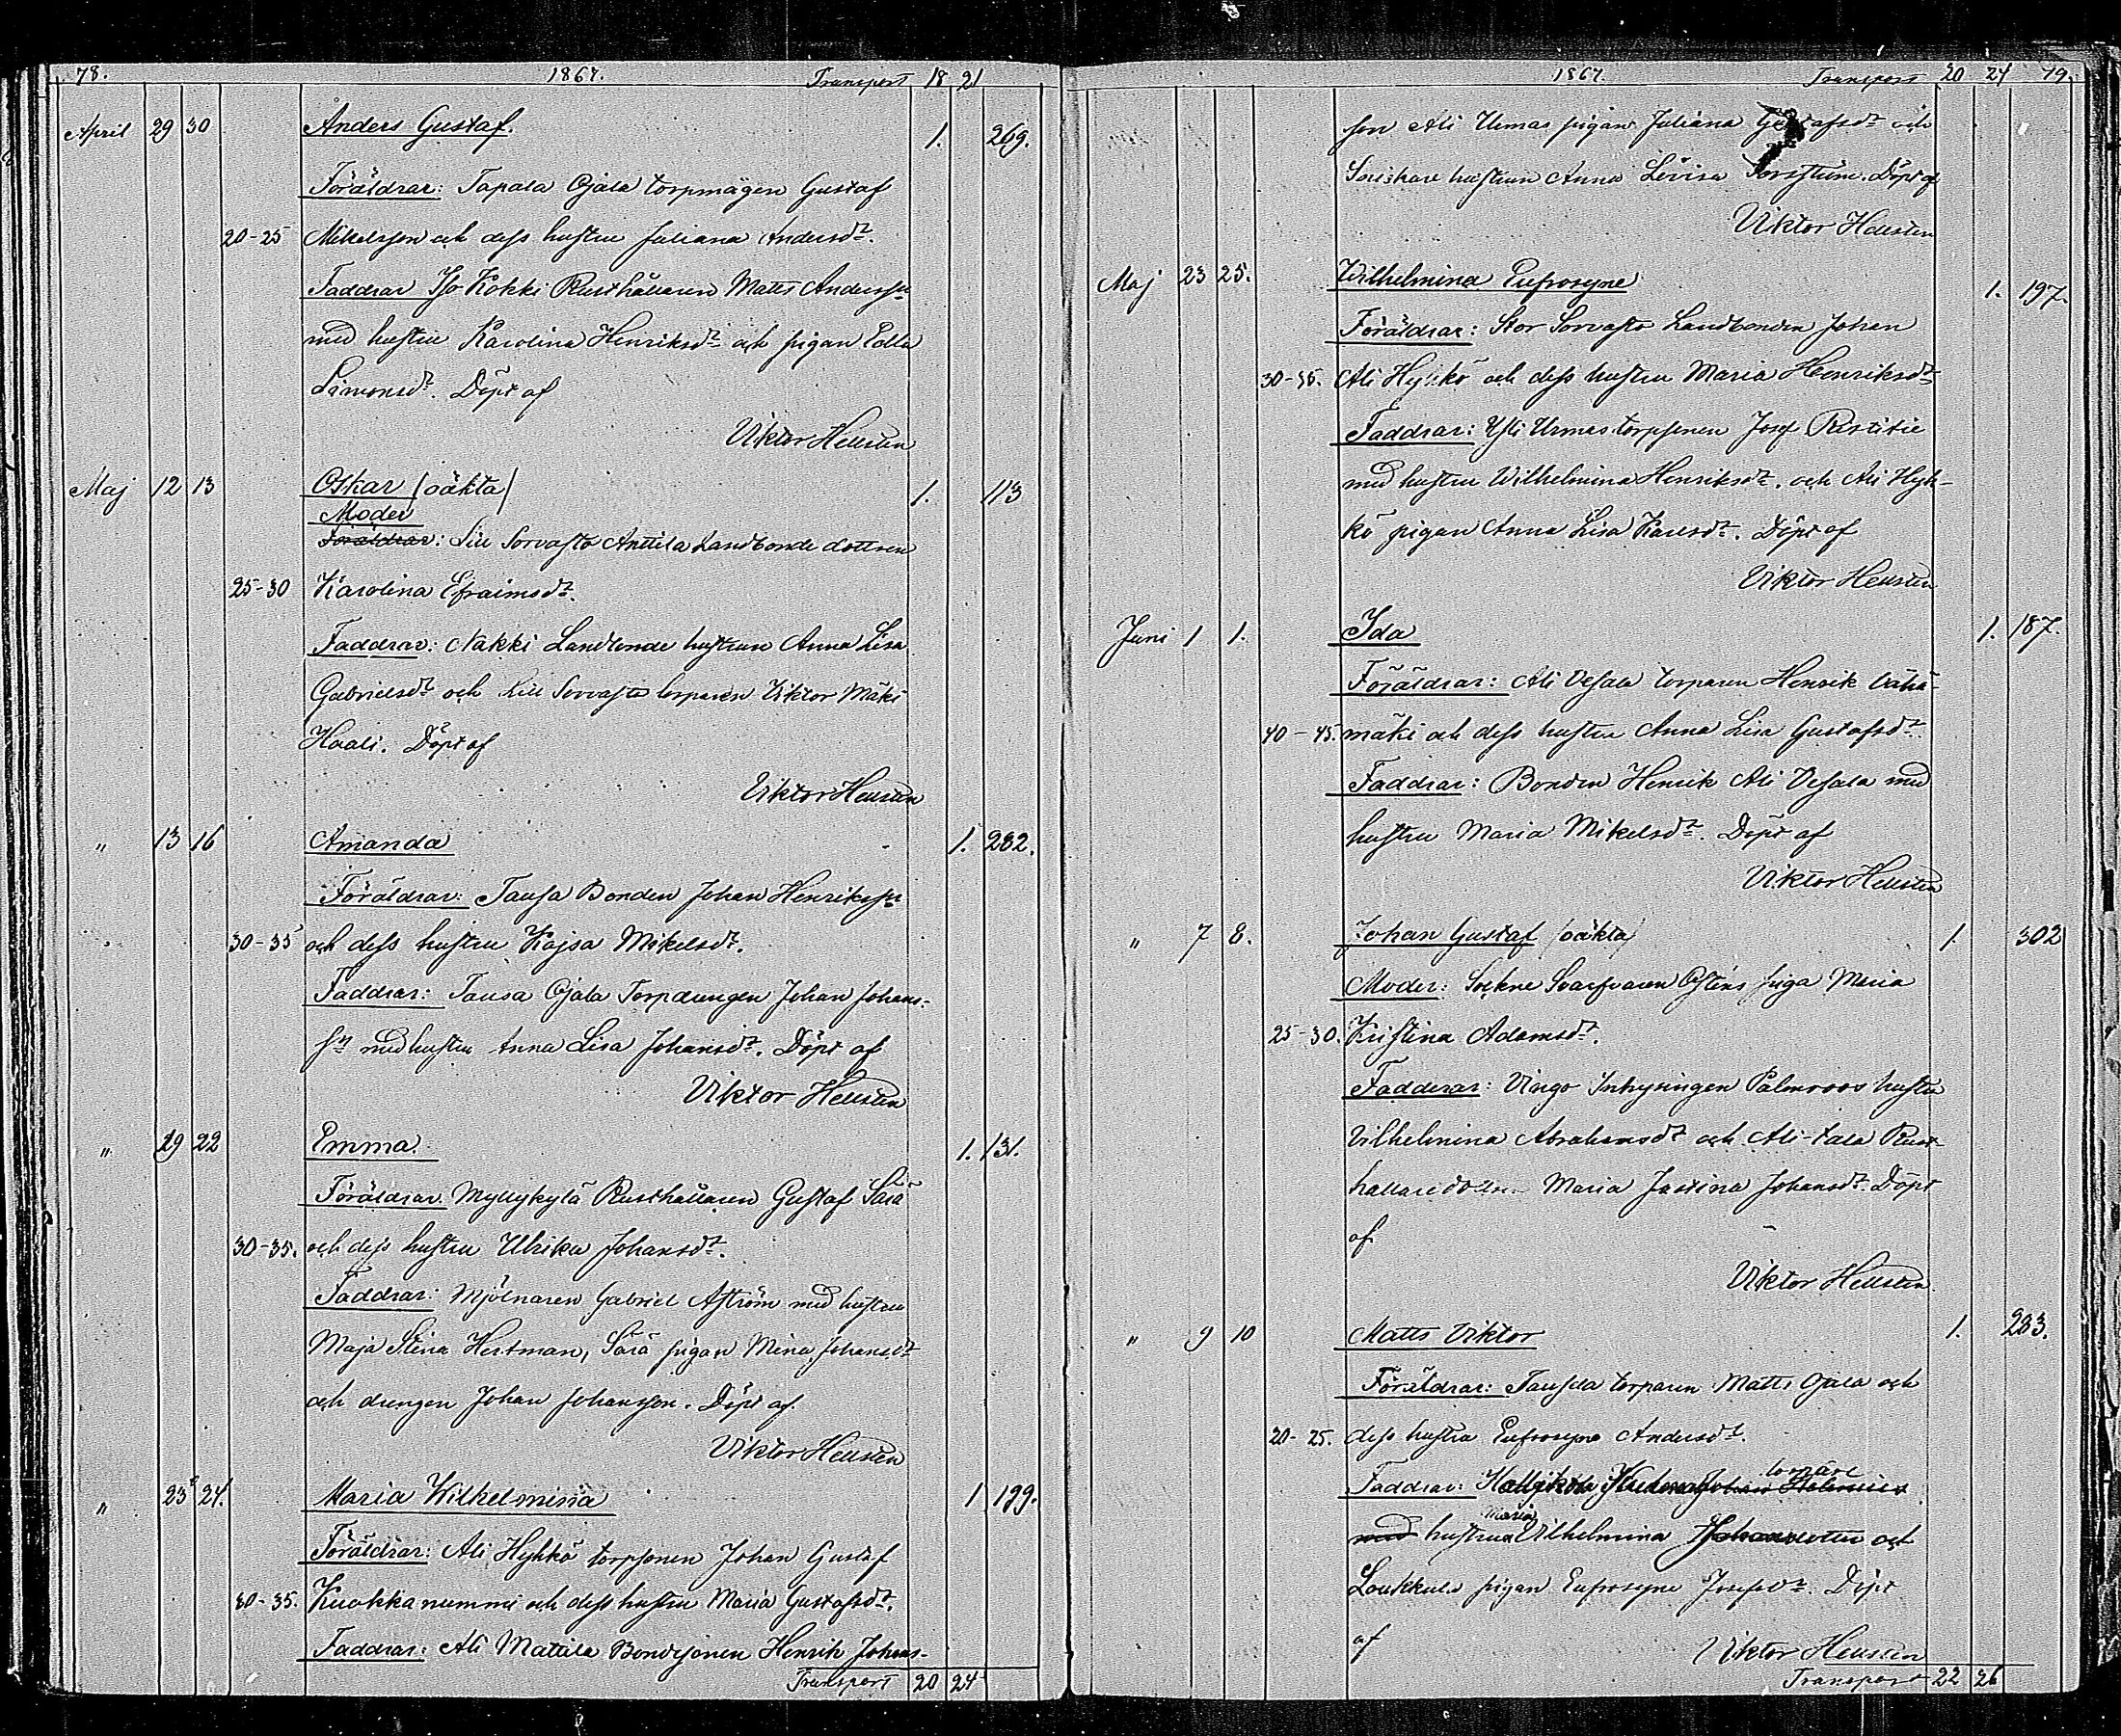 78. 1867. Transport 18 21
April 29 30 Anders Gustaf. 1. 269.
Föräldrar: Tapala Ojala torpmågen Gustaf
20-25 Mikelsson och dess hustru Juliana Andersdr.
Faddrar Iso Kokki Rusthållaren Matts Anderssn
med hustru Karolina Henriksdr och pigan Edla
Simonsdr. Döpt af
Viktor Hellsten
Maj 12 13 Oskar (oäkta) 1. 113
Moder
Föräldrar: Lill Sorvasto Anttila Landbonde dottren
25-30 Karolina Efraimsdr.
Faddrar: Nakki Landbonde hustrun Anna Lisa
Gabrielsdr och Lill Sorvasto torparen Viktor Mäki
Haali. Döpt af
Viktor Hellsten
" 13 16 Amanda 1. 282.
Föräldrar: Tausa Bonden Johan Henrikssn
30-35 och dess hustru Kajsa Mikelsdr.
Faddrar: Tausa Ojala Torpdrengen Johan Johans-
sn med hustru Anna Lisa Johansdr. Döpt af
Viktor Hellsten
" 19 22 Emma. 1. 131.
Föräldrar Myllykylä Rusthållaren Gustaf Sasä
30-35. och dess hustru Ulrika Johansdr.
Faddrar: Mjölnaren Gabriel Åström med hustru
Maja Stina Hertman, Sasä pigan Mina Johansdr
och drengen Johan Johansson. Döpt af
Viktor Hellsten
" 23 24. Maria Wilhelmina 1 199.
Föräldrar: Ali Hyhkö torpsonen Johan Gustaf
30-35. Kuokkanummi och dess hustru Maria Gustafsdr.
Faddrar: Ali Mattila Bondesonen Henrik Johans-
Transport 20 24
1867. Transport 20 24 79.
son Ali Urmas pigan Juliana Gustafsdr och
hustrun Anna Lovisa Forsström. Döpt af
Viktor Hellsten
Maj 23 25. Wilhelmina Eufrosyne 1. 197.
Föräldrar: Stor Sorvasto Landbonden Johan
30-35. Ali Hyhkö och dess hustru Maria Henriksdr
Faddrar: Yli Urmas torpsonen Josef Ristitie
med hustru Wilhelmina Henriksdr. och Ali Hyh-
kö pigan Anna Lisa Karlsdr. Döpt af
Viktor Hellsten
Juni 1 1. Ida 1. 187.
Föräldrar: Ali Vesala torparen Henrik Vähä-
40-45. mäki och dess hustru Anna Lisa Gustafsdr
Faddrar: Bonden Henrik Ali Vesala med
hustru Maria Mikelsdr. Döpt af
Viktor Hellsten
" 7 8. Johan Gustaf (oäkta) 1. 302
Moder: Sockne Svarfvaren Östéns piga Maria
25-30. Kristina Adamsdr.
Fadderar: Vingo Inhysingen Palmroos hustru
Vilhelmina Abrahamsdr och Ali-tala Rust-
hållaredottren Maria Justina Johansdr. Döpt
af
Viktor Hellsten
" 9 10 Matts Viktor 1. 283.
Föräldrar: Tausala torparen Matts Ojala och
20-25. dess hustru Eufrosyne Andersdr.
torpare
Faddrar: Johan
Maria
med hustrun Vilhelmina och
Loukkula pigan Eufrosyne Josefsdr. Döpt
af Viktor Hellsten
Transport 22 26